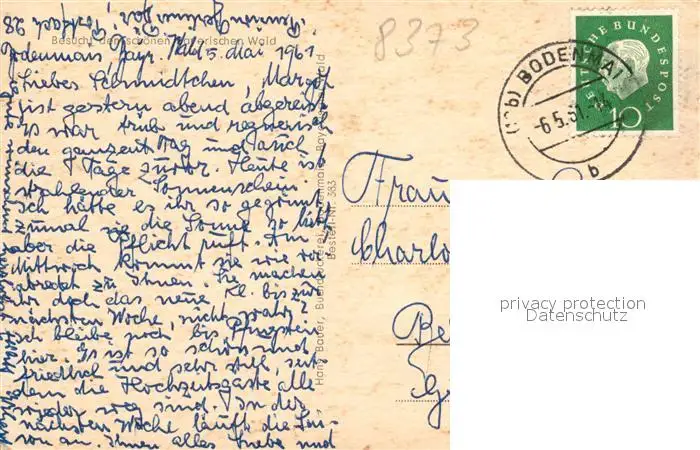 Pension
Postfach 28
Besucht den schönen Bayerischen Wald
Bodenmais, Bayr. Wld, 5. Mai 1961.
Liebes Schmidtchen, Margot
ist gestern abend abgereist
Es war trüb und regnerisch
den ganzen Tag und auch
die Tage zuvor. Heute ist
strahlender Sonnenschein.
Ich hätte es ihr so gegönnt
zumal sie die Sonne so liebt
aber die Pflicht ruft. Am
Mittwoch kommt sie wie ver-
abredet zu Ihnen. Sie machen
ihr doch das neue Kl. bis zur
nächsten Woche, nicht wahr?
Ich bleibe noch bis Pfingsten
hier. Es ist so schön und
friedlich und sehr still, seit-
dem die Hochzeitsgäste alle
wieder weg sind. In der
nächsten Woche läuft die Sai-
son an. Ihnen alles Liebe und
Hans Bauer, Buchdruckerei, Bodenmais, Bayer. Wald
Bestell-Nr. 383
8373
DEUTSCHE BUNDESPOST
10
(13b) BODENMAIS
-6.5.61.
b
Frau
Charlo
Be
G
privacy protection
Datenschutz